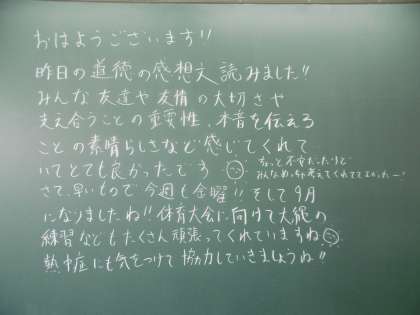 おはようございます!!
昨日の道徳の感想文読みました!!
みんな友達や友情の大切さや
支え合うことの重要性、本音を伝える
ことの素晴らしさなど感じてくれて
いてとても良かったです
ちょっと不安だったけど
みんなめっちゃ考えてくれててよかったー!
さて、早いもので今週も金曜!! そして9月
になりましたね!! 体育大会に向けて大縄の
練習などもたくさん頑張ってくれていますね
熱中症にも気をつけて協力していきましょうね!!